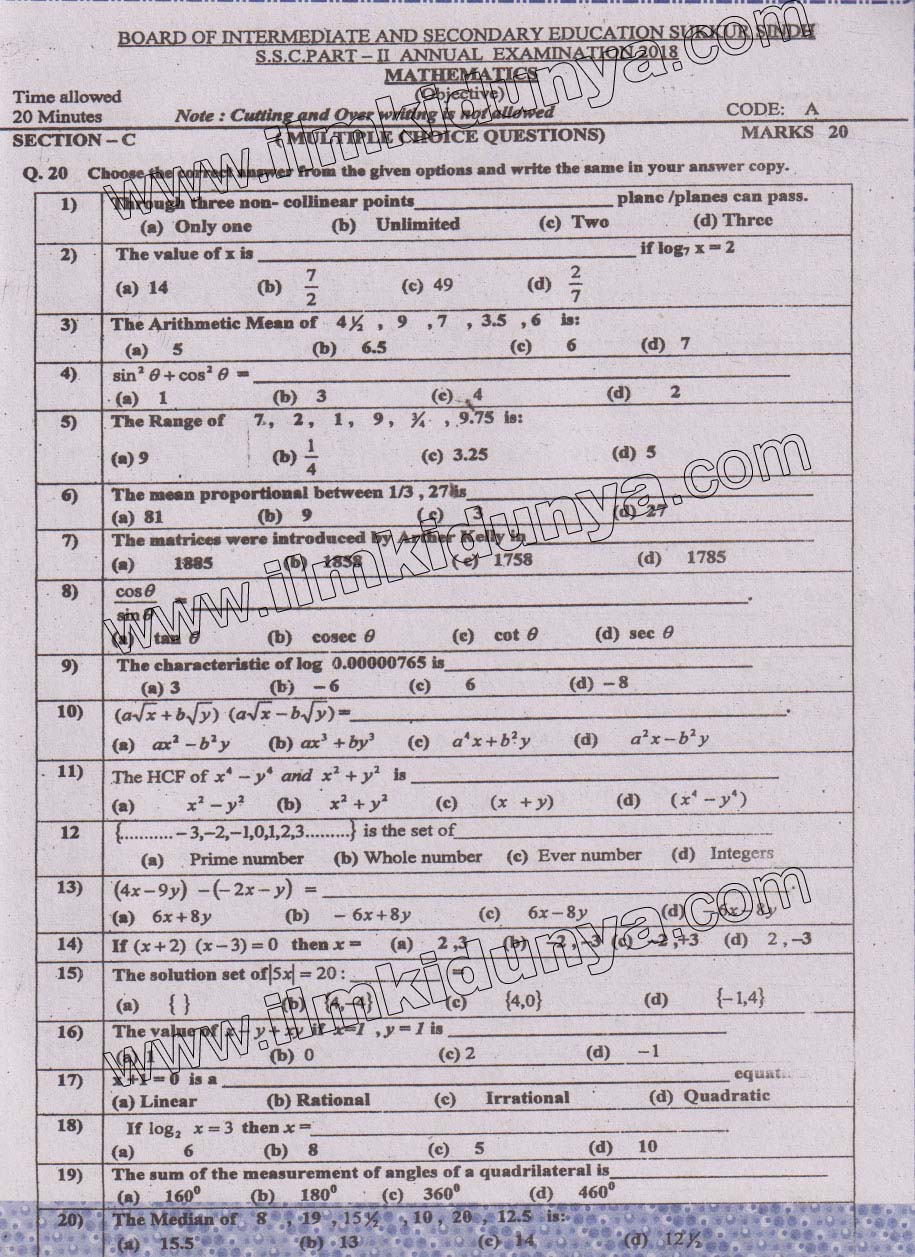 BOARD OF INTERMEDIATE AND SECONDARY EDUCATION SUKKUR SINDH
S.S.C.PART – II ANNUAL EXAMINATION 2018
MATHEMATICS
(Objective)
Time allowed
20 Minutes
Note : Cutting and Over writing is not allowed
CODE: A
SECTION – C
( MULTIPLE CHOICE QUESTIONS)
MARKS 20
Q. 20 Choose the correct answer from the given options and write the same in your answer copy.
1) Through three non- collinear points____________ plane /planes can pass.
(a) Only one (b) Unlimited (c) Two (d) Three
2) The value of x is ____________ if log₇ x = 2
(a) 14 (b) 7/2 (c) 49 (d) 2/7
3) The Arithmetic Mean of 4½ , 9 , 7 , 3.5 , 6 is:
(a) 5 (b) 6.5 (c) 6 (d) 7
4) sin² θ + cos² θ = ____________
(a) 1 (b) 3 (c) 4 (d) 2
5) The Range of 7, 2, 1, 9, ¾ , 9.75 is:
(a) 9 (b) 1/4 (c) 3.25 (d) 5
6) The mean proportional between 1/3 , 27 is____________
(a) 81 (b) 9 (c) 3 (d) 27
7) The matrices were introduced by Arther Kelly in____________
(a) 1885 (b) 1858 (c) 1758 (d) 1785
8) cosθ/sinθ = ____________.
(a) tan θ (b) cosec θ (c) cot θ (d) sec θ
9) The characteristic of log 0.00000765 is____________
(a) 3 (b) – 6 (c) 6 (d) – 8
10) (a√x + b√y) (a√x – b√y) =____________.
(a) ax² – b²y (b) ax³ + by³ (c) a⁴x + b²y (d) a²x – b²y
11) The HCF of x⁴ – y⁴ and x² + y² is ____________
(a) x² – y² (b) x² + y² (c) (x + y) (d) (x⁴ – y⁴)
12 {...........–3,–2,–1,0,1,2,3.........} is the set of____________
(a) Prime number (b) Whole number (c) Ever number (d) Integers
13) (4x – 9y) – (– 2x – y) = ____________.
(a) 6x + 8y (b) – 6x + 8y (c) 6x – 8y (d) – 6x – 8y
14) If (x + 2) (x – 3) = 0 then x = (a) 2 ,3 (b) –2 , –3 (c) –2 ,+3 (d) 2 , –3
15) The solution set of |5x| = 20 : ____________
(a) { } (b) {4,–4} (c) {4,0} (d) {–1,4}
16) The value of x – y + xy if x=1 , y = 1 is ____________
(a) 1 (b) 0 (c) 2 (d) –1
17) x + 1 = 0 is a ____________ equat
(a) Linear (b) Rational (c) Irrational (d) Quadratic
18) If log₂ x = 3 then x =____________
(a) 6 (b) 8 (c) 5 (d) 10
19) The sum of the measurement of angles of a quadrilateral is____________
(a) 160⁰ (b) 180⁰ (c) 360⁰ (d) 460⁰
20) The Median of 8 , 19 , 15½ , 10 , 20 , 12.5 is:
(a) 15.5 (b) 13 (c) 14 (d) 12½
www.ilmkidunya.com
www.ilmkidunya.com
www.ilmkidunya.com